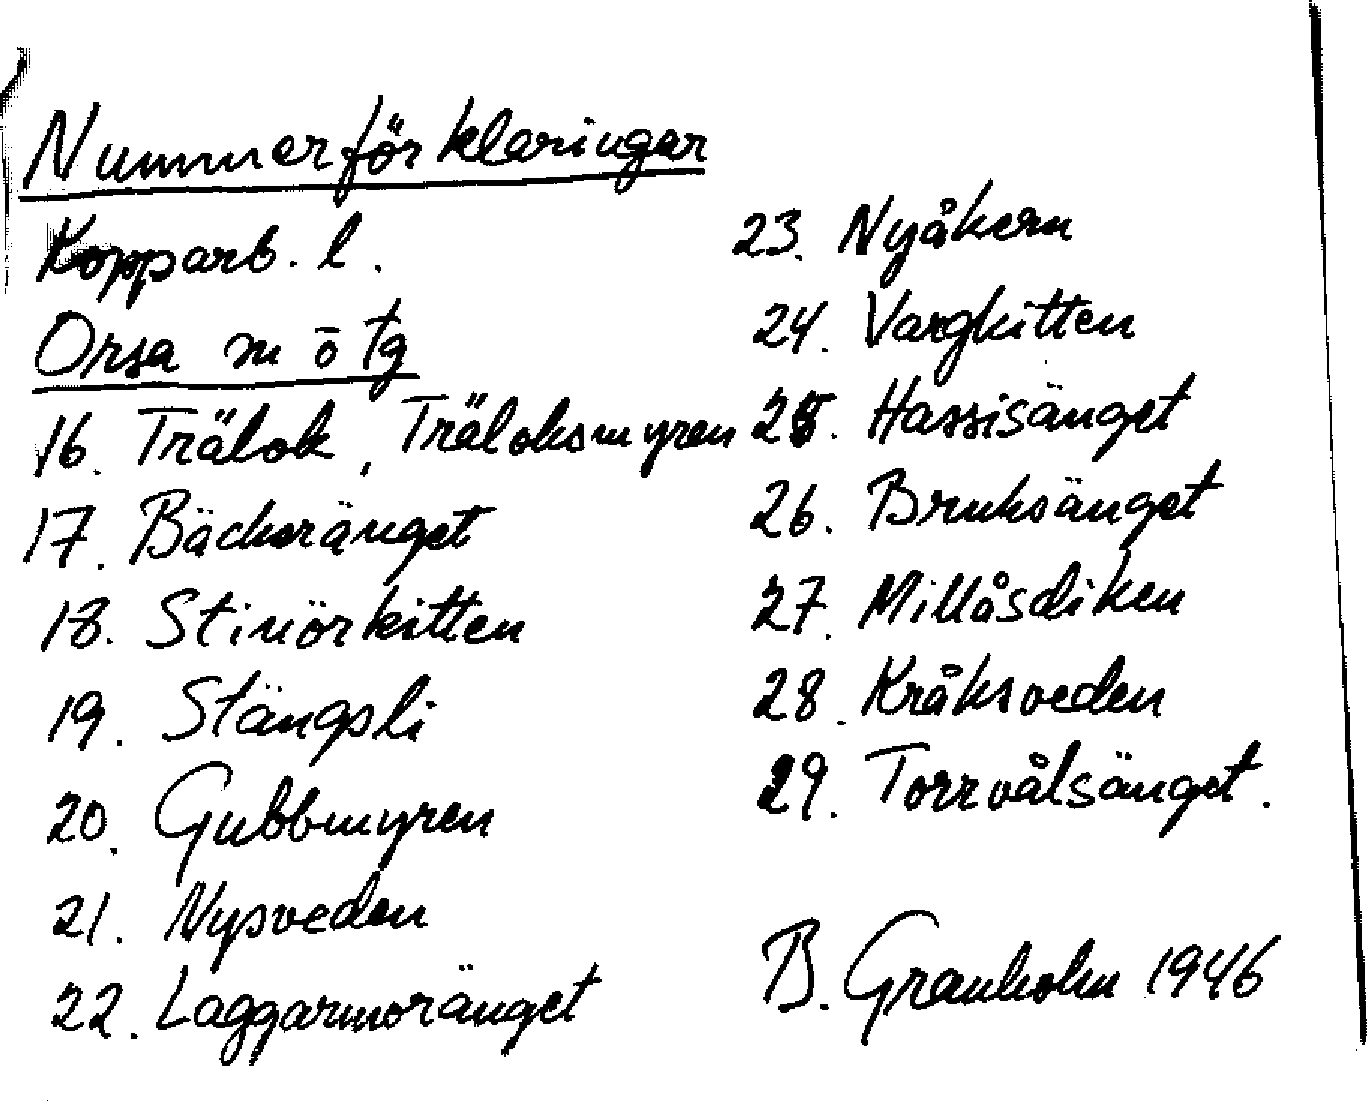 Nummerförklaringar
Kopparb. l.
Orsa m o tg
16. Trälok, Träloksmyren
17. Bäckeränget
18. Stimörkitten
19. Stängsli
20. Gubbmyren
21. Nysveden
22. Laggarmoränget
23. Nyåkern
24. Vargkitten
25. Hassisänget
26. Bruksänget
27. Millåsdiken
28. Kråksveden
29. Torrvålsänget.
B. Granholm 1946